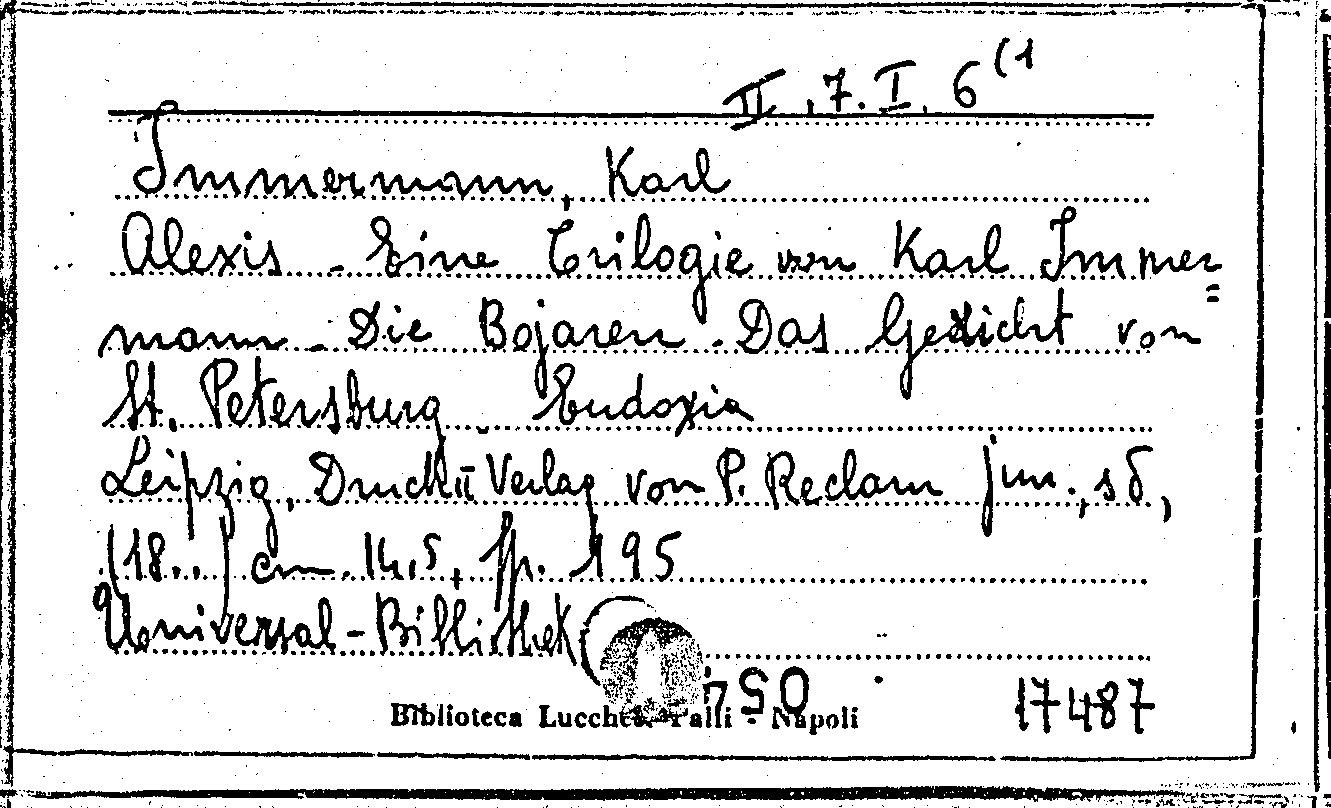 II, 7. I. 6 (1
Immermann, Karl
Alexis - Eine Trilogie von Karl Immer=
mann - Die Bojaren - Das Gedicht von
St. Petersburg - Eudoxia
Leipzig, Druck u Verlag von P. Reclam jun., sd,
(18..) cm. 14,5, pp. 195
Universal-Bibliothek
Biblioteca Lucchesi Palli - Napoli
17487